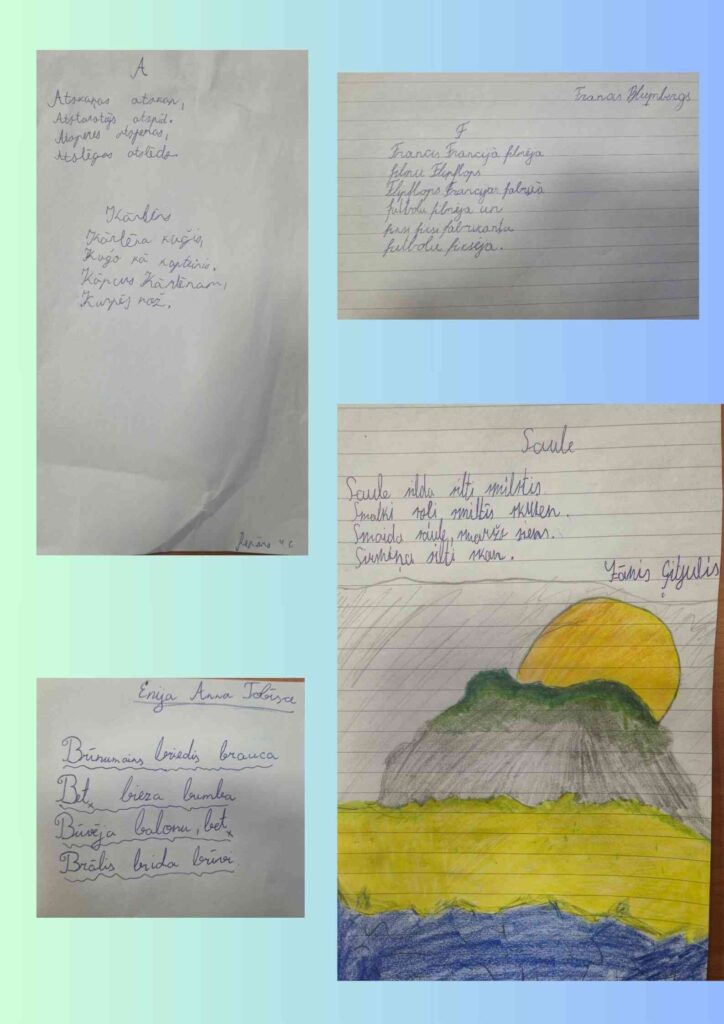 A
Atskaņas atskan,
Atstarotājs atspīd.
Atsperes atsperas,
Atslēgas atslēdz.
Kārlēns
Kārlēna kuģis,
Kuģo kā kapteinis.
Kāpurs Kārlēnam,
Kurpēs nāk.
4. c
Francis Blumbergs
F
Francis Francijā filmēja
filmu Flipflops
Flipflops Francijas fabrikā
futbolu filmēja un
fiksi fiksi fabrikantu
futbolu fiksēja.
Saule
Saule silda silti smiltis
Smalki soli smiltīs skrien.
Smaida saule, smaržo siens.
Sirsniņa silti skan.
Žanis Ģiģulis
Enija Anna
Brūnumains briedis brauca
Bet, bieza bumba
Būvēja balonu, bet,
Brālis brida brīvi